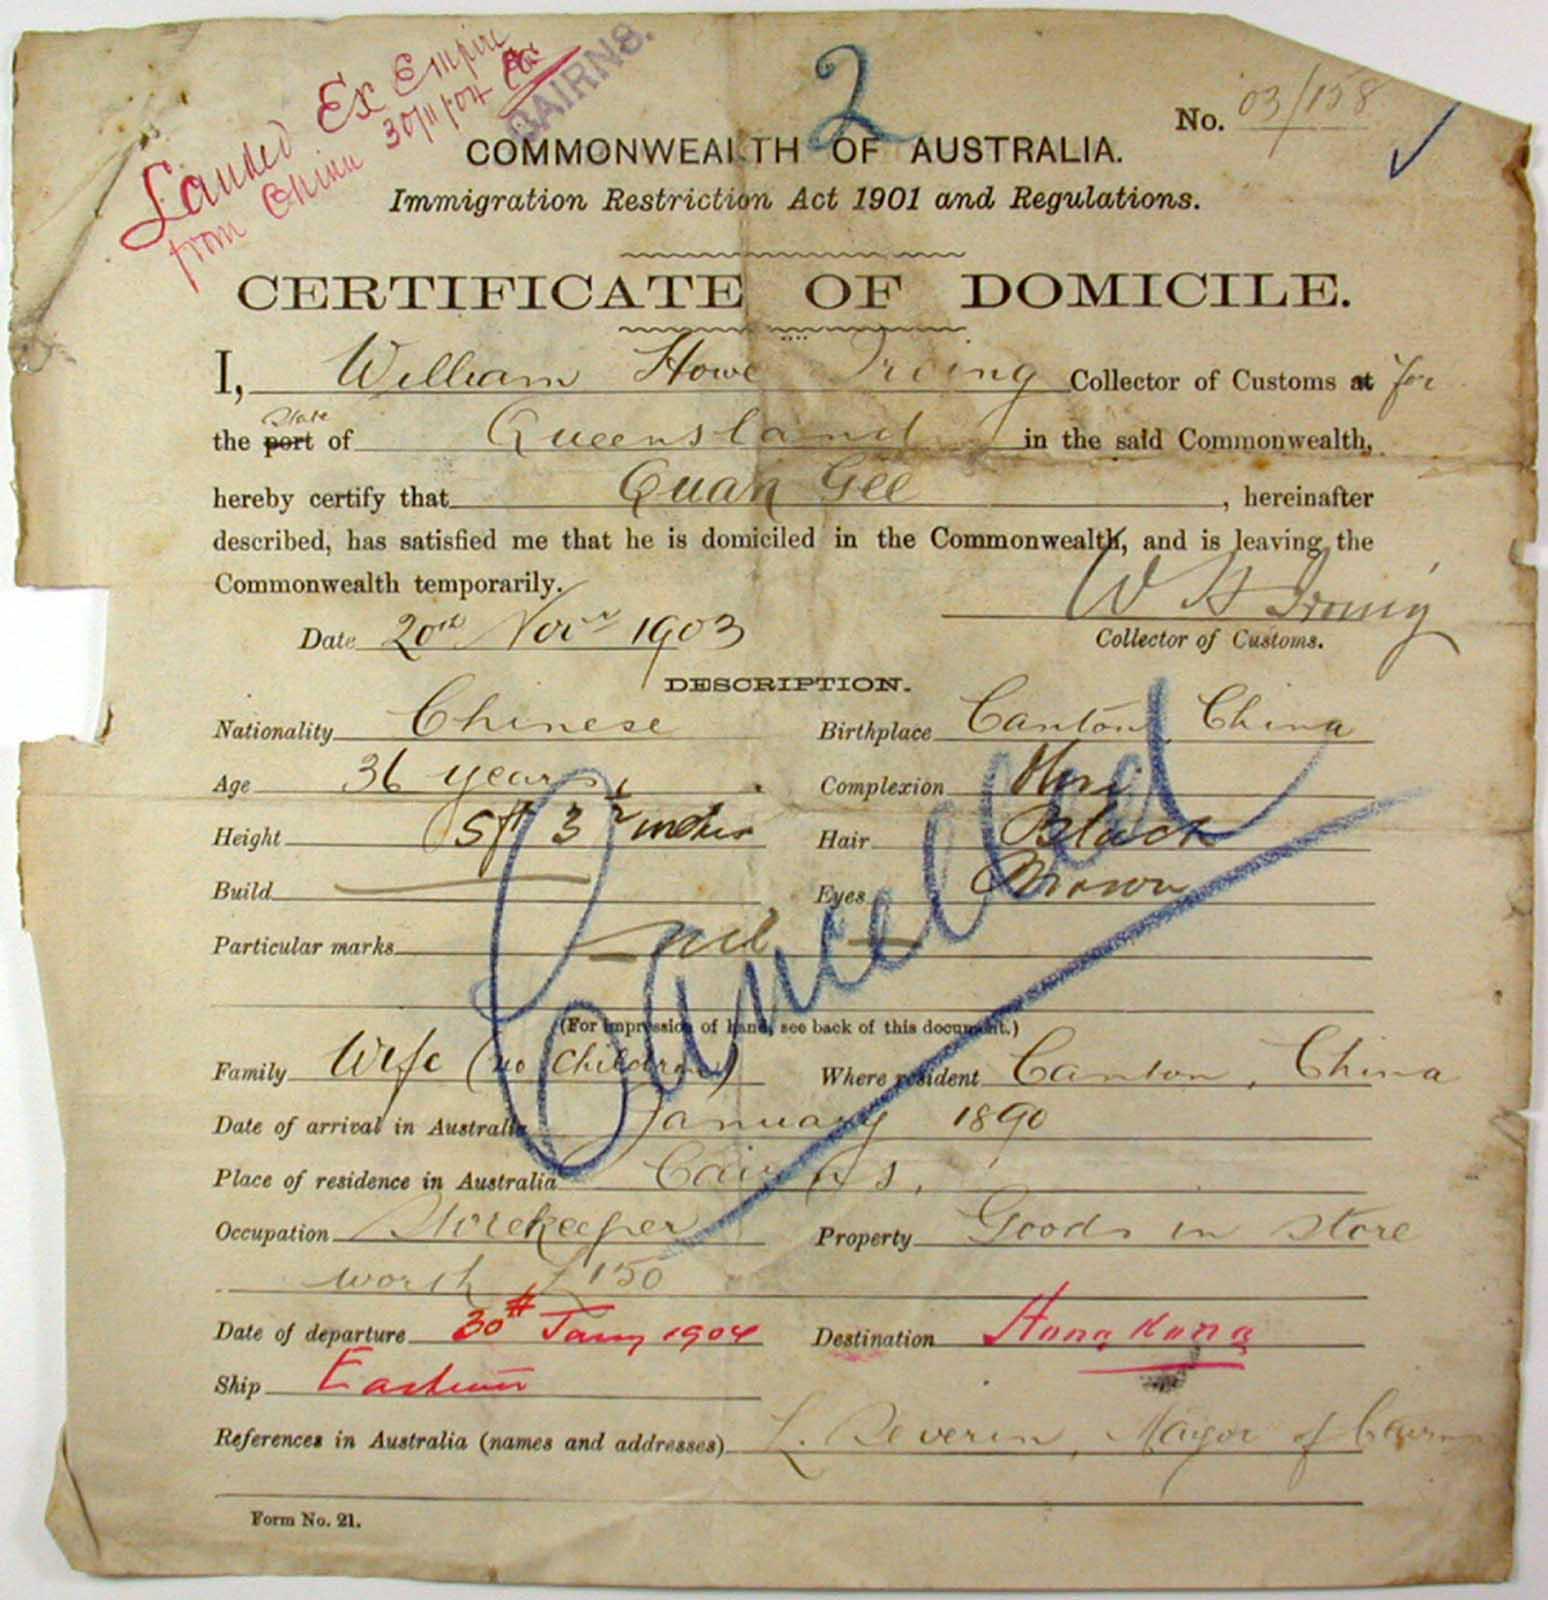 Landed Ex Empire
from China 30/11/04
CAIRNS.
2
No. 03/158
COMMONWEALTH OF AUSTRALIA.
Immigration Restriction Act 1901 and Regulations.
CERTIFICATE OF DOMICILE.
I, William Howe Irving Collector of Customs at for
the port State of Queensland in the said Commonwealth,
hereby certify that Quan Gee, hereinafter
described, has satisfied me that he is domiciled in the Commonwealth, and is leaving the
Commonwealth temporarily.
Date 20th Novr 1903 W H Irving
Collector of Customs.
DESCRIPTION.
Nationality Chinese Birthplace Canton, China
Age 36 years Complexion
Height 5ft 3 inches Hair Black
Build Eyes Brown
Particular marks nil
Cancelled
(For impression of hand, see back of this document.)
Family Wife (no children) Where resident Canton, China
Date of arrival in Australia January 1890
Place of residence in Australia Cairns.
Occupation Storekeeper Property Goods in store
worth £150
Date of departure 30th Jany 1904 Destination Hong Kong
Ship Eastern
References in Australia (names and addresses) L. Severin, Mayor of Cairns
Form No. 21.